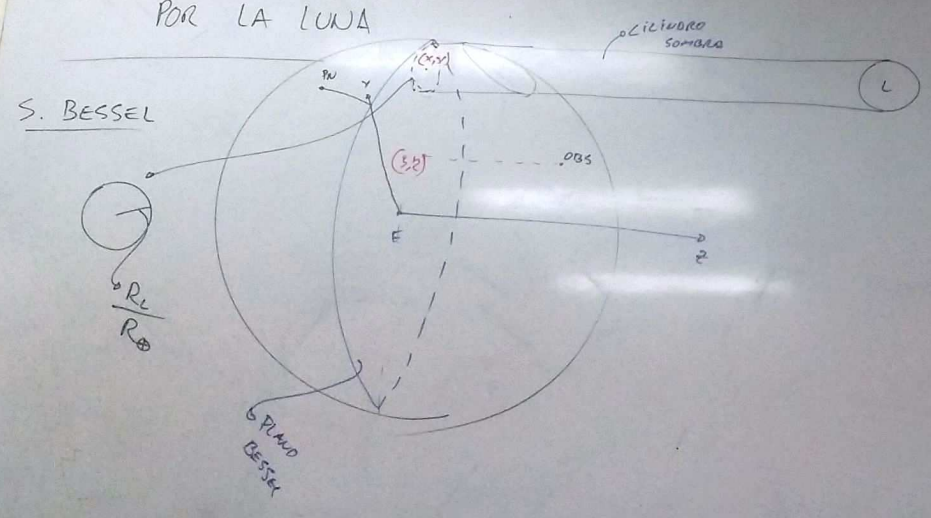 POR LA LUNA
CILINDRO
SOMBRA
S. BESSEL
PN
Y
(X,Y)
L
OBS
E
Z
R_L
R_⊕
PLANO
BESSEL